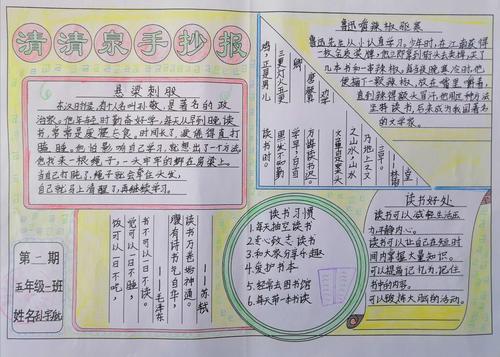 清清泉手抄报
悬梁刺股
东汉时候,有个人名叫孙敬,是著名的政
治家。他年轻时勤奋好学,每天从早到晚读
书,常常是废寝忘食。时间久了,疲倦得直打
瞌睡。他怕影响自己学习,就想出了一个方法,
他找来一根绳子,一头牢牢的绑在房梁上。
当自己打盹了,绳子就会牵住头发,
自己就马上清醒了,再继续学习。
第一期
五年级一班
饭可以一日不吃,
觉可以一日不睡,
书不可以一日不读。
——毛泽东
腹有诗书气自华,
读书万卷始通神。
——苏轼
三更灯火五更
鸡,正是男儿
读书时。
——颜真卿
黑发不知勤
学早,白首
方悔读书迟。
文章是案头
之山水,山水
乃地上之文
章。
——林语堂
鲁迅嚼辣椒驱寒
鲁迅先生从小认真学习。少年时,在江南
一枚金质奖牌。他立即拿到街头去卖掉,买了
几本书和一串辣椒,每当晚寒冷时,他
便摘下一颗辣椒,放在嘴里嚼着,
直到辣得额头冒汗。他用这种方法
坚持读书,后来成为我国著名
的文学家。
读书习惯
1.每天抽空读书
3.和大家分享乐趣
4.爱护书本
5.经常去图书馆
6.每天带一本书读
读书好处
读书可以减轻生活压
力,平静内心。
读书可以让自己在短时
间内掌握大量知识。
可以提高记忆力,记住
书中的内容。
可以锻炼大脑的活动。